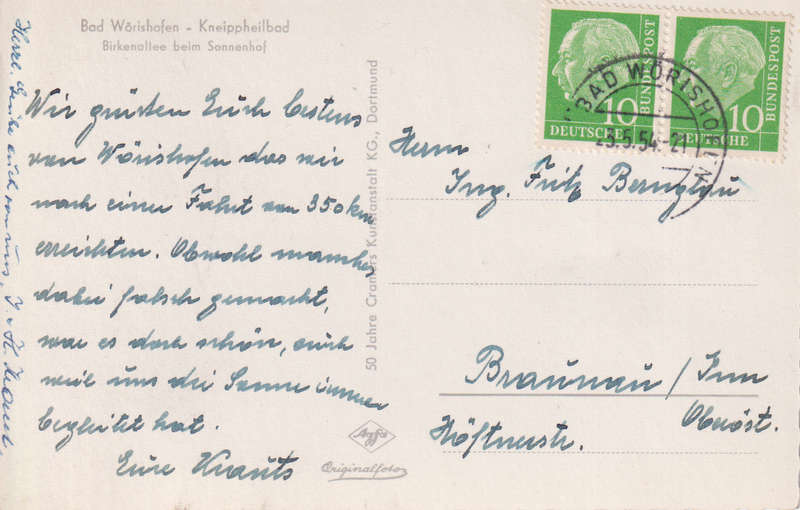 Bad Wörishofen - Kneippheilbad
Birkenallee beim Sonnenhof
Wir grüßen Euch bestens
von Wörishofen das wir
nach einer Fahrt von 350 km
erreichten. Obwohl manches
dabei falsch gemacht,
war es doch schön, auch
weil uns die Sonne immer
begleitet hat.
Eure Krauts
Herzl. Grüße auch von uns,
50 Jahre Cramers Kunstanstalt KG., Dortmund
Agfa
Originalfoto
10
DEUTSCHE
BUNDESPOST
10
DEUTSCHE
BUNDESPOST
BAD WÖRISHO
5.54.-21
Herrn
Ing. Fritz Bernglau
Braunau / Inn
Oberöst.
Höftnerstr.